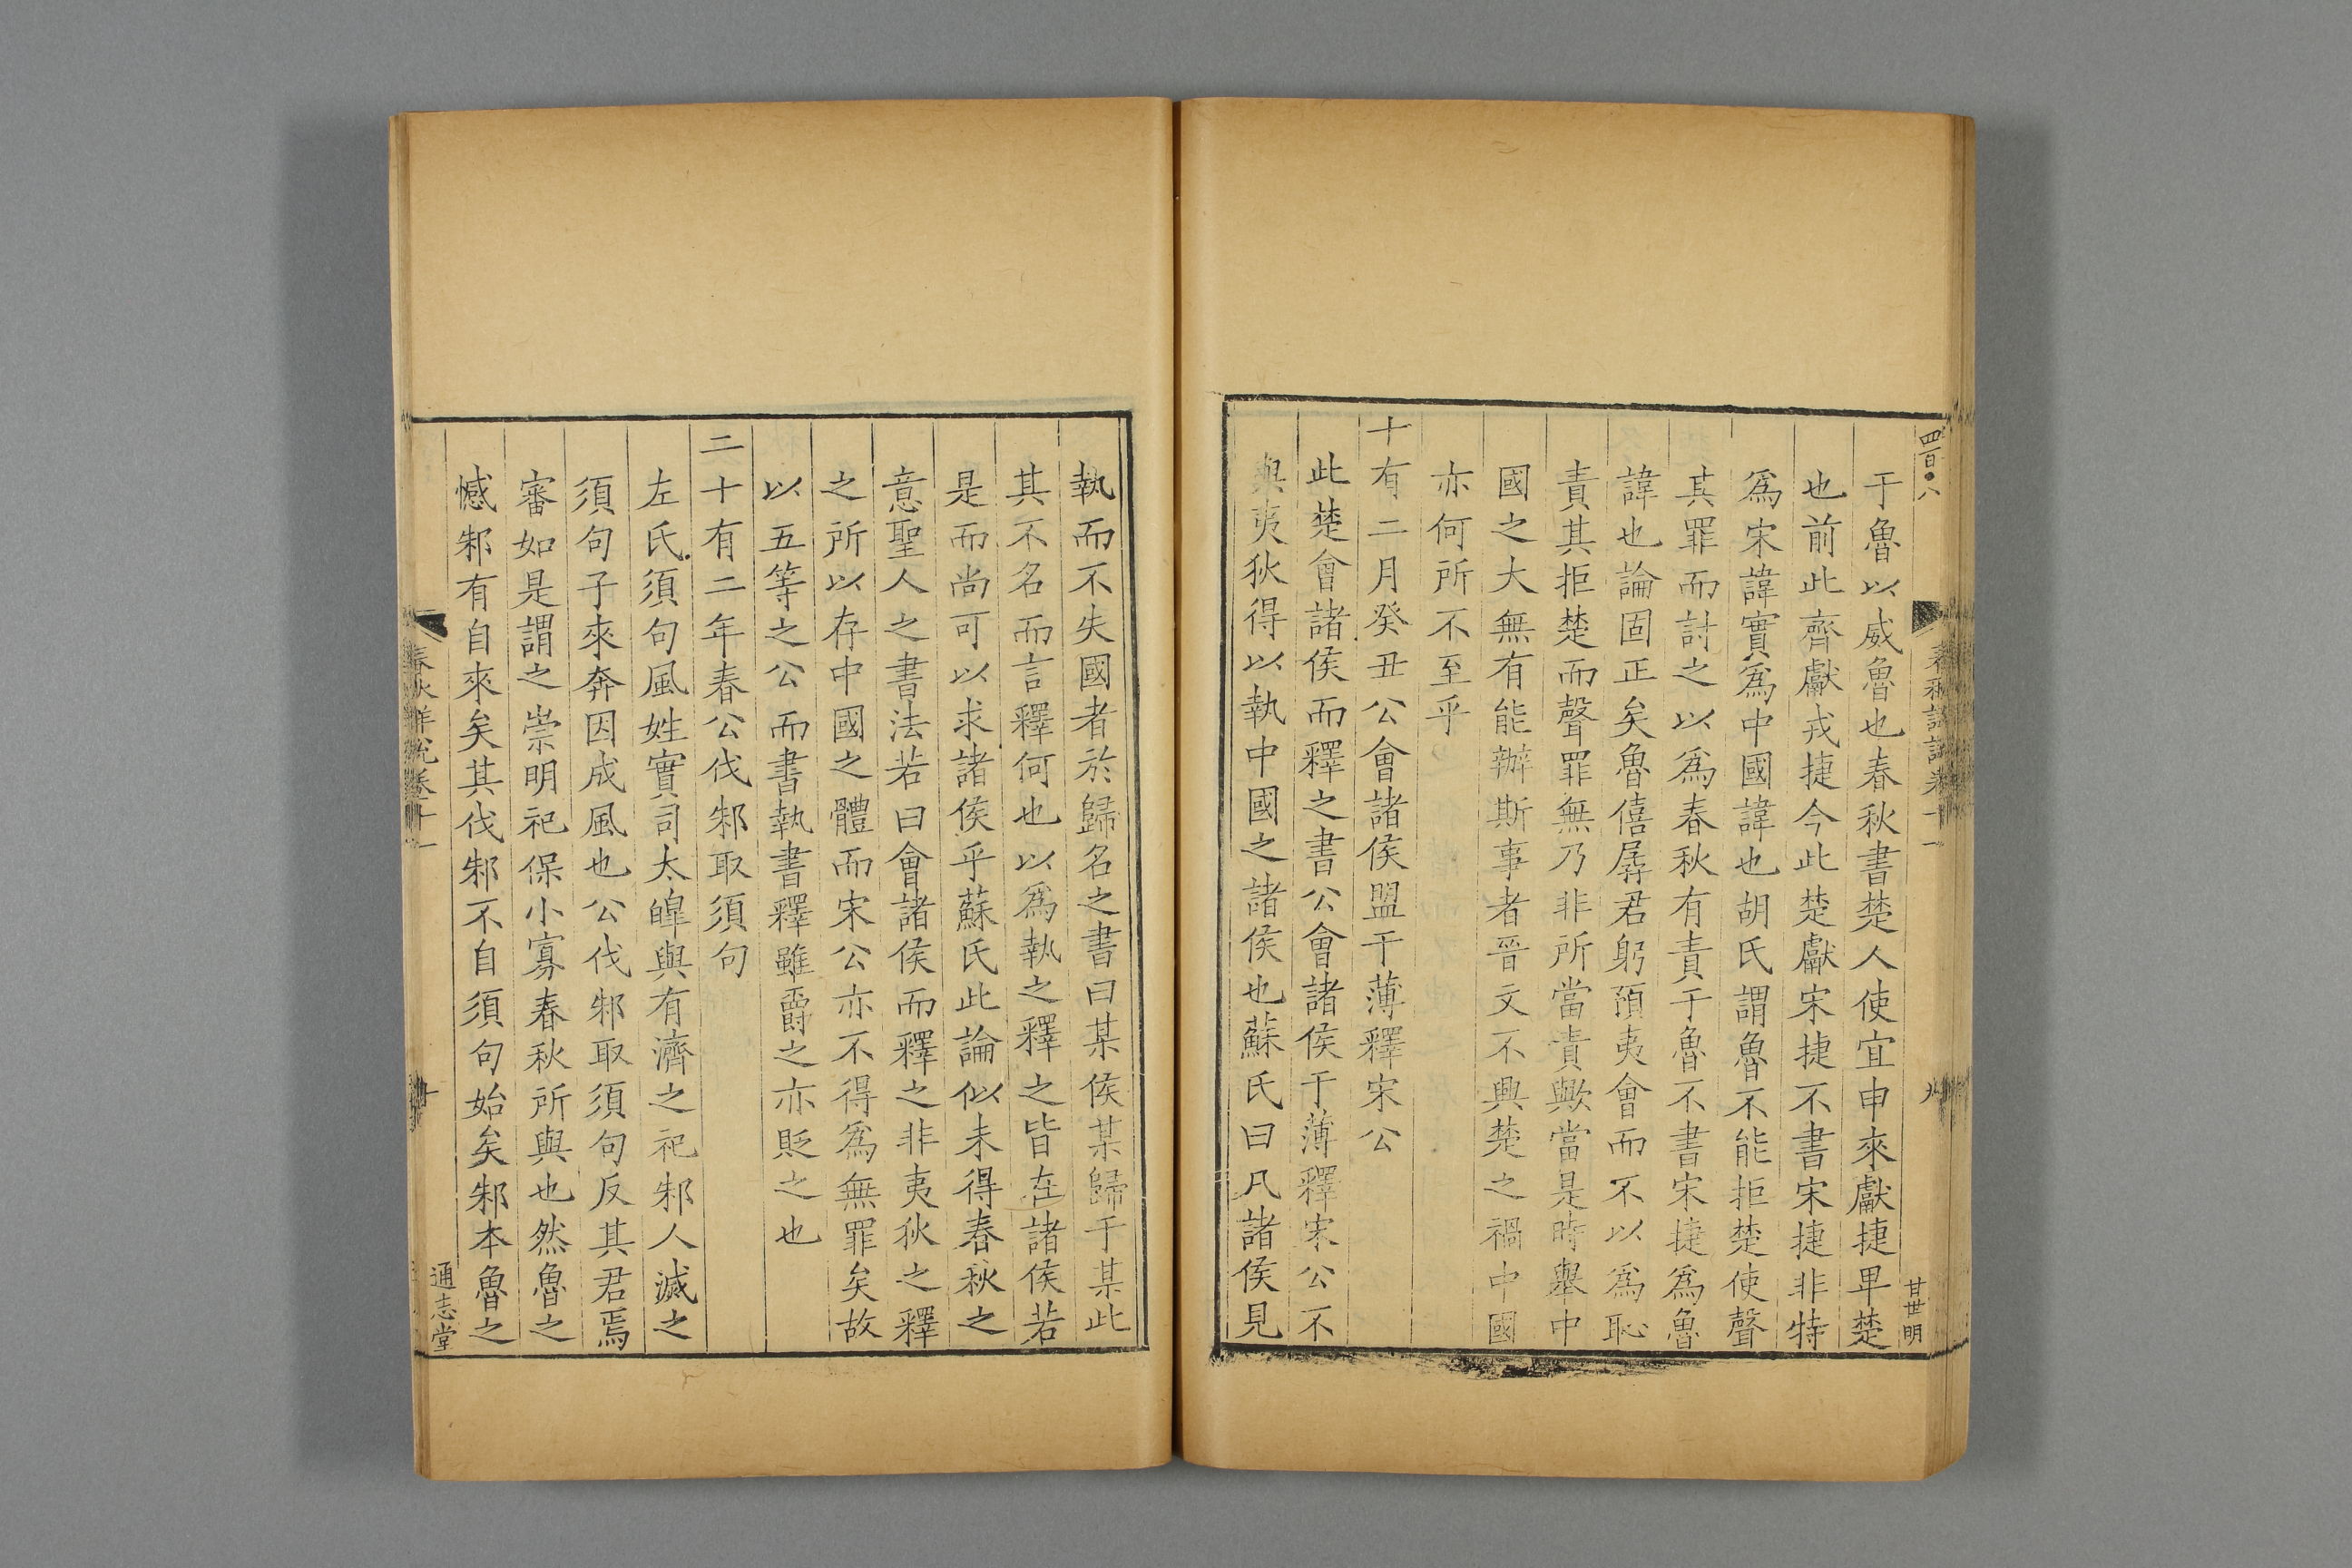 四百〇八
春秋詳説卷十一
九
甘世明
于魯以威魯也春秋書楚人使宜申來獻捷卑楚
也前此齊獻戎捷今此楚獻宋捷不書宋捷非特
爲宋諱實爲中國諱也胡氏謂魯不能拒楚使聲
其罪而討之以爲春秋有責于魯不書宋捷爲魯
諱也論固正矣魯僖孱君躬預夷會而不以爲恥
責其拒楚而聲罪無乃非所當責歟當是時舉中
國之大無有能辦斯事者晉文不興楚之禍中國
亦何所不至乎
十有二月癸丑公會諸侯盟于薄釋宋公
此楚會諸侯而釋之書公會諸侯于薄釋宋公不
與夷狄得以執中國之諸侯也蘇氏曰凡諸侯見
執而不失國者於歸名之書曰某侯某歸于某此
其不名而言釋何也以爲執之釋之皆在諸侯若
是而尚可以求諸侯乎蘇氏此論似未得春秋之
意聖人之書法若曰會諸侯而釋之非夷狄之釋
之所以存中國之體而宋公亦不得爲無罪矣故
以五等之公而書執書釋雖爵之亦貶之也
二十有二年春公伐邾取須句
左氏須句風姓實司太皥與有濟之祀邾人滅之
須句子來奔因成風也公伐邾取須句反其君焉
審如是謂之崇明祀保小寡春秋所與也然魯之
憾邾有自來矣其伐邾不自須句始矣邾本魯之
春秋詳說卷十一
十
通志堂